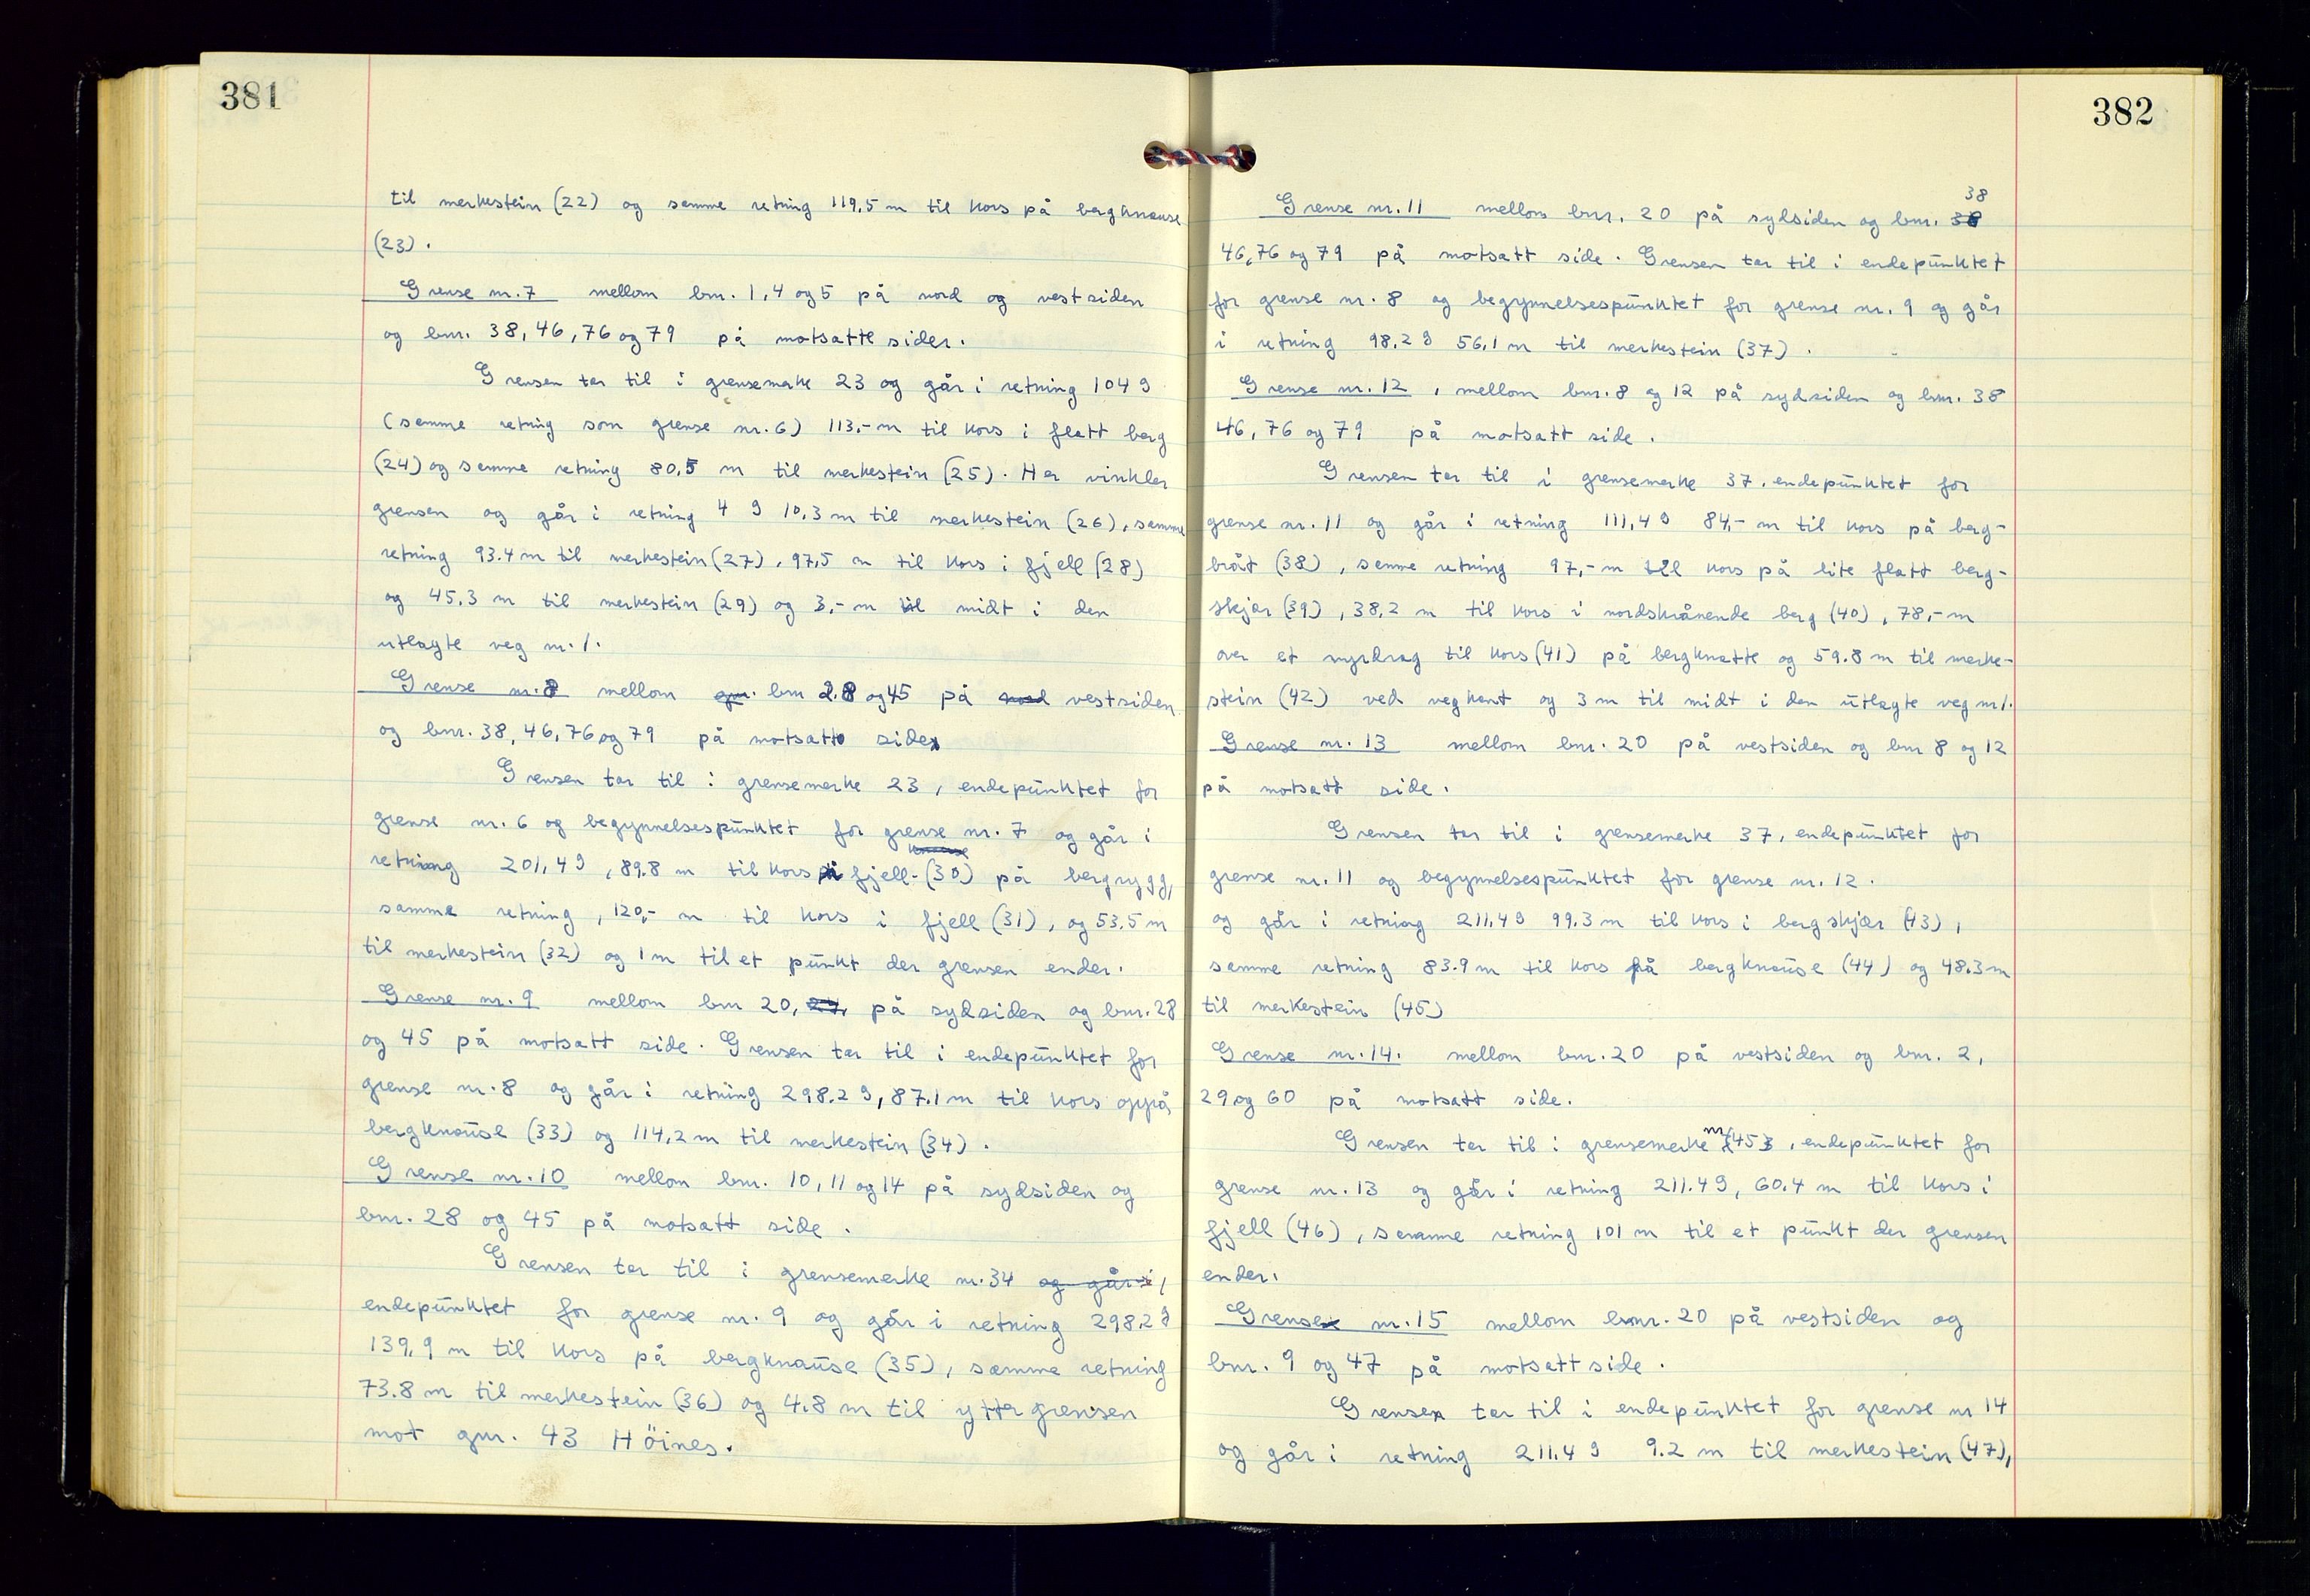 381
til merkestein (22) og samme retning 119,5 m til kors på bergknause
(23).
Grense nr. 7 mellom bnr. 1, 4 og 5 på nord og vestsiden
og bnr. 38, 46, 76 og 79 på motsatte sider.
Grensen tar til i grensemerke 23 og går i retning 104 g
(samme retning som grense nr. 6) 113,- m til kors i flatt berg
(24) og samme retning 80,5 m til merkestein (25). Her vinkler
grensen og går i retning 4 g 10,3 m til merkestein (26), samme
retning 93.4 m til merkestein (27), 97,5 m til kors i fjell (28)
og 45,3 m til merkestein (29) og 3,- m til midt i den
utlagte veg nr. 1.
Grense nr. 8 mellom gnr. bnr 2.8 og 45 på nord vestsiden
og bnr. 38, 46, 76 og 79 på motsatt side
Grensen tar til i grensemerke 23, endepunktet for
grense nr. 6 og begynnelsespunktet for grense nr. 7 og går i
knause
retning 201,4 g, 89.8 m til kors i fjell (30) på bergrygg,
samme retning, 120,- m til kors i fjell (31), og 53,5 m
til merkestein (32) og 1 m til et punkt der grensen ender.
Grense nr. 9 mellom bnr 20, 27, på sydsiden og bnr. 28
og 45 på motsatt side. Grensen tar til i endepunktet for
grense nr. 8 og går i retning 298.2 g, 87.1 m til kors oppå
bergknause (33) og 114,2 m til merkestein (34).
Grense nr. 10 mellom bnr. 10, 11 og 14 på sydsiden og
bnr. 28 og 45 på motsatt side.
Grensen tar til i grensemerke nr. 34 og går i,
endepunktet for grense nr. 9 og går i retning 298,2 g
139,9 m til kors på bergknause (35), samme retning
73.8 m til merkestein (36) og 4,8 m til yttergrensen
mot gnr. 43 Höines.
382
38
Grense nr. 11 mellom bnr. 20 på sydsiden og bnr. 38
46, 76 og 79 på motsatt side. Grensen tar til i endepunktet
for grense nr. 8 og begynnelsespunktet for grense nr. 9 og går
i retning 98,2 g 56,1 m til merkestein (37).
Grense nr. 12, mellom bnr. 8 og 12 på sydsiden og bnr. 38
46, 76 og 79 på motsatt side.
Grensen tar til i grensemerke 37, endepunktet for
grense nr. 11 og går i retning 111,4 g 84,- m til kors på berg-
bråt (38), samme retning 97,- m til kors på lite flatt berg-
skjær (39), 38,2 m til kors i nordskrånende berg (40), 78,- m
over et myrdrag til kors (41) på bergknatte og 59.8 m til merke-
stein (42) ved vegkant og 3 m til midt i den utlagte veg nr 1.
Grense nr. 13 mellom bnr. 20 på vestsiden og bnr 8 og 12
på motsatt side.
Grensen tar til i grensemerke 37, endepunktet for
grense nr. 11 og begynnelsespunktet for grense nr. 12.
og går i retning 211,4 g 99.3 m til kors i bergskjær (43),
samme retning 83.9 m til kors på bergknause (44) og 48.3 m
til merkestein (45)
Grense nr. 14. mellom bnr. 20 på vestsiden og bnr. 2,
29 og 60 på motsatt side.
Grensen tar til i grensemerke nr (45), endepunktet for
grense nr. 13 og går i retning 211.4 g, 60.4 m til kors i
fjell (46), samme retning 101 m til et punkt der grensen
ender.
Grense nr. 15 mellom bnr. 20 på vestsiden og
bnr. 9 og 47 på motsatt side.
Grensen tar til i endepunktet for grense nr 14
og går i retning 211.4 g 9.2 m til merkestein (47),